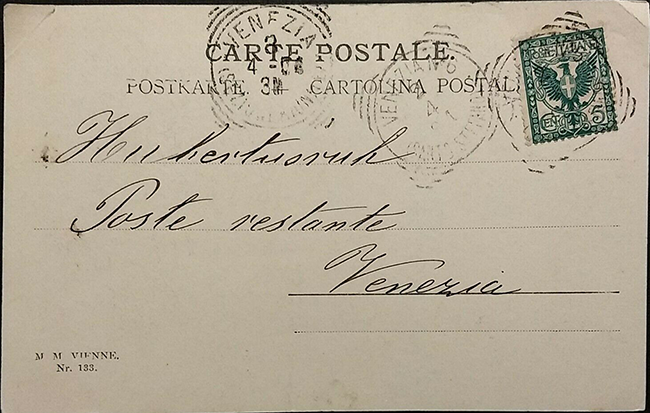 CARTE POSTALE.
POSTKARTE. — CARTOLINA POSTAL
VENEZIA
3
4 -
3
VENEZIA
4
CENT 5
Hubertusruh
Poste restante
Venezia
M. M. VIENNE.
Nr. 133.